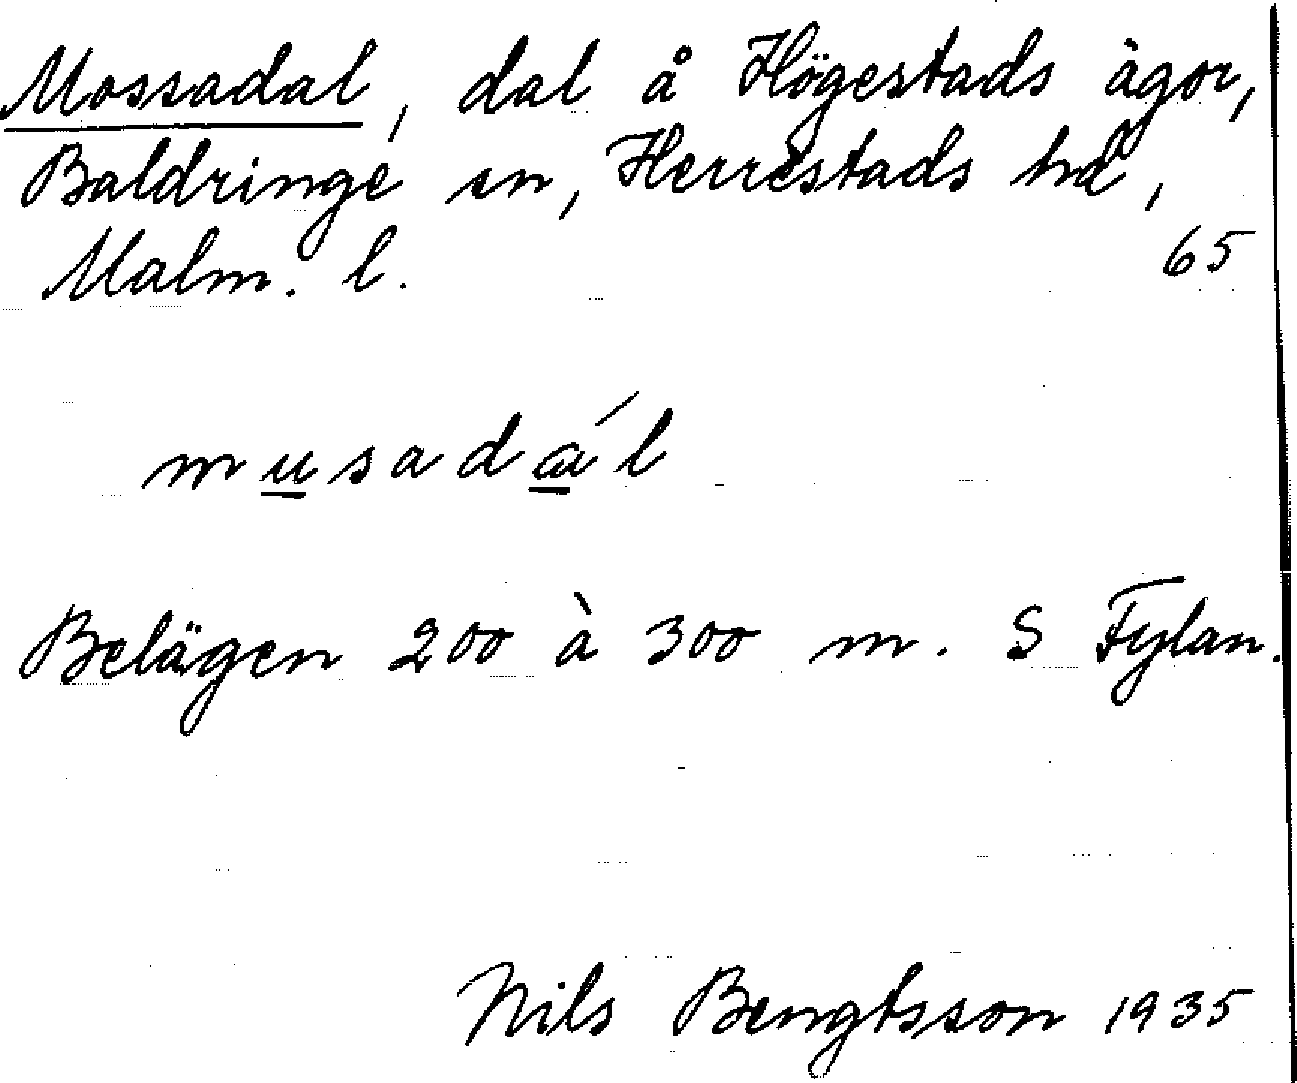 Mossadal, dal å Högestads ägor,
Baldringe sn, Herrestads hd,
Malm. l. 65
musadál
Belägen 200 à 300 m. S Fylan.
Nils Bengtsson 1935